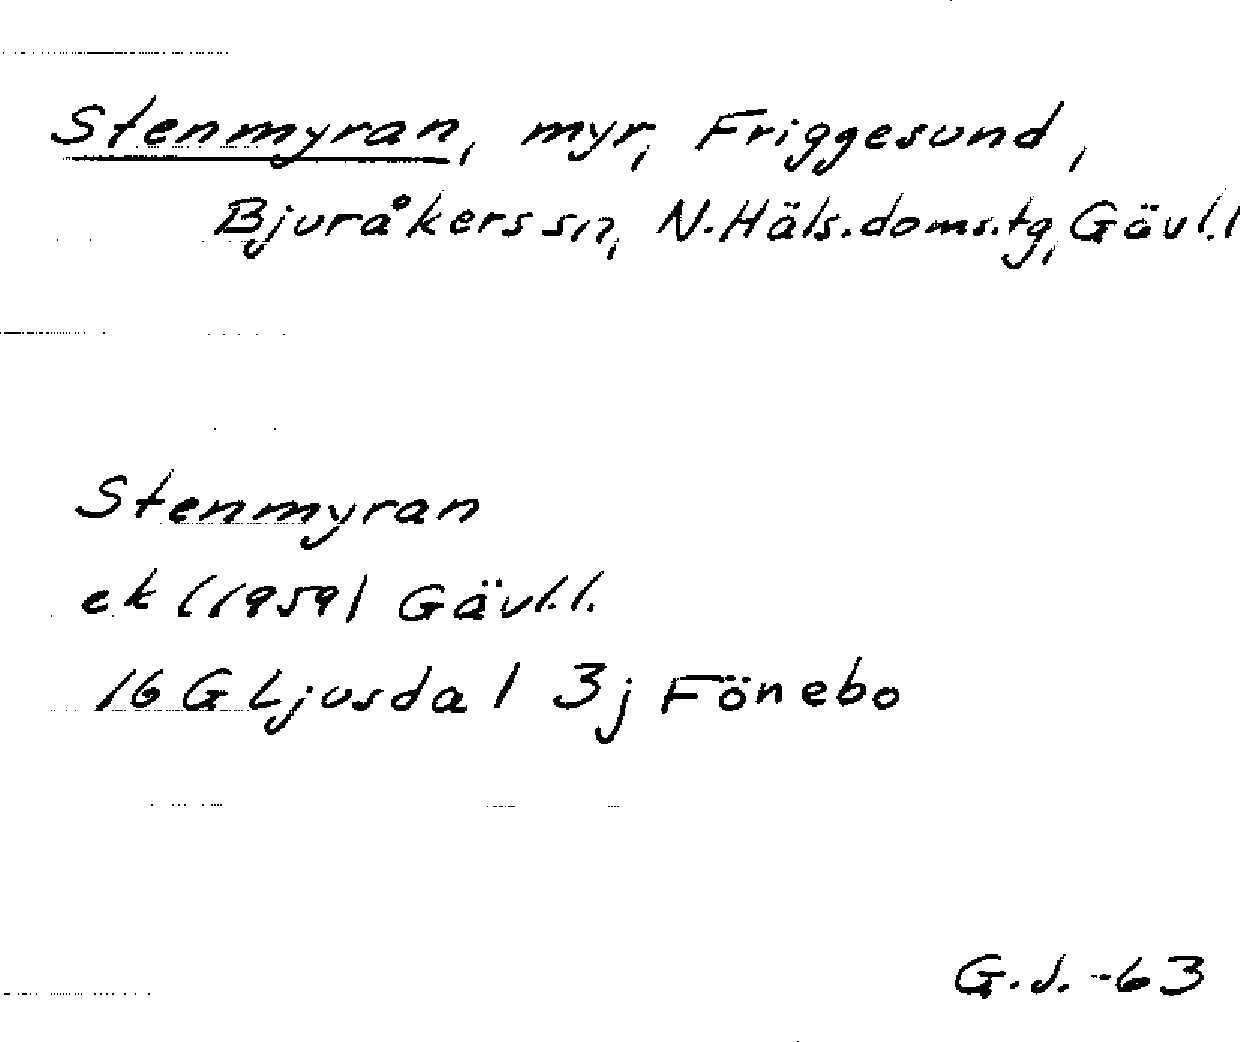 Stenmyran, myr, Friggesund,
Bjuråkers sn, N.Häls.doms.tg, Gävl.l
Stenmyran
ek (1959) Gävl.l.
16 G Ljusdal 3j Fönebo
G.J. -63